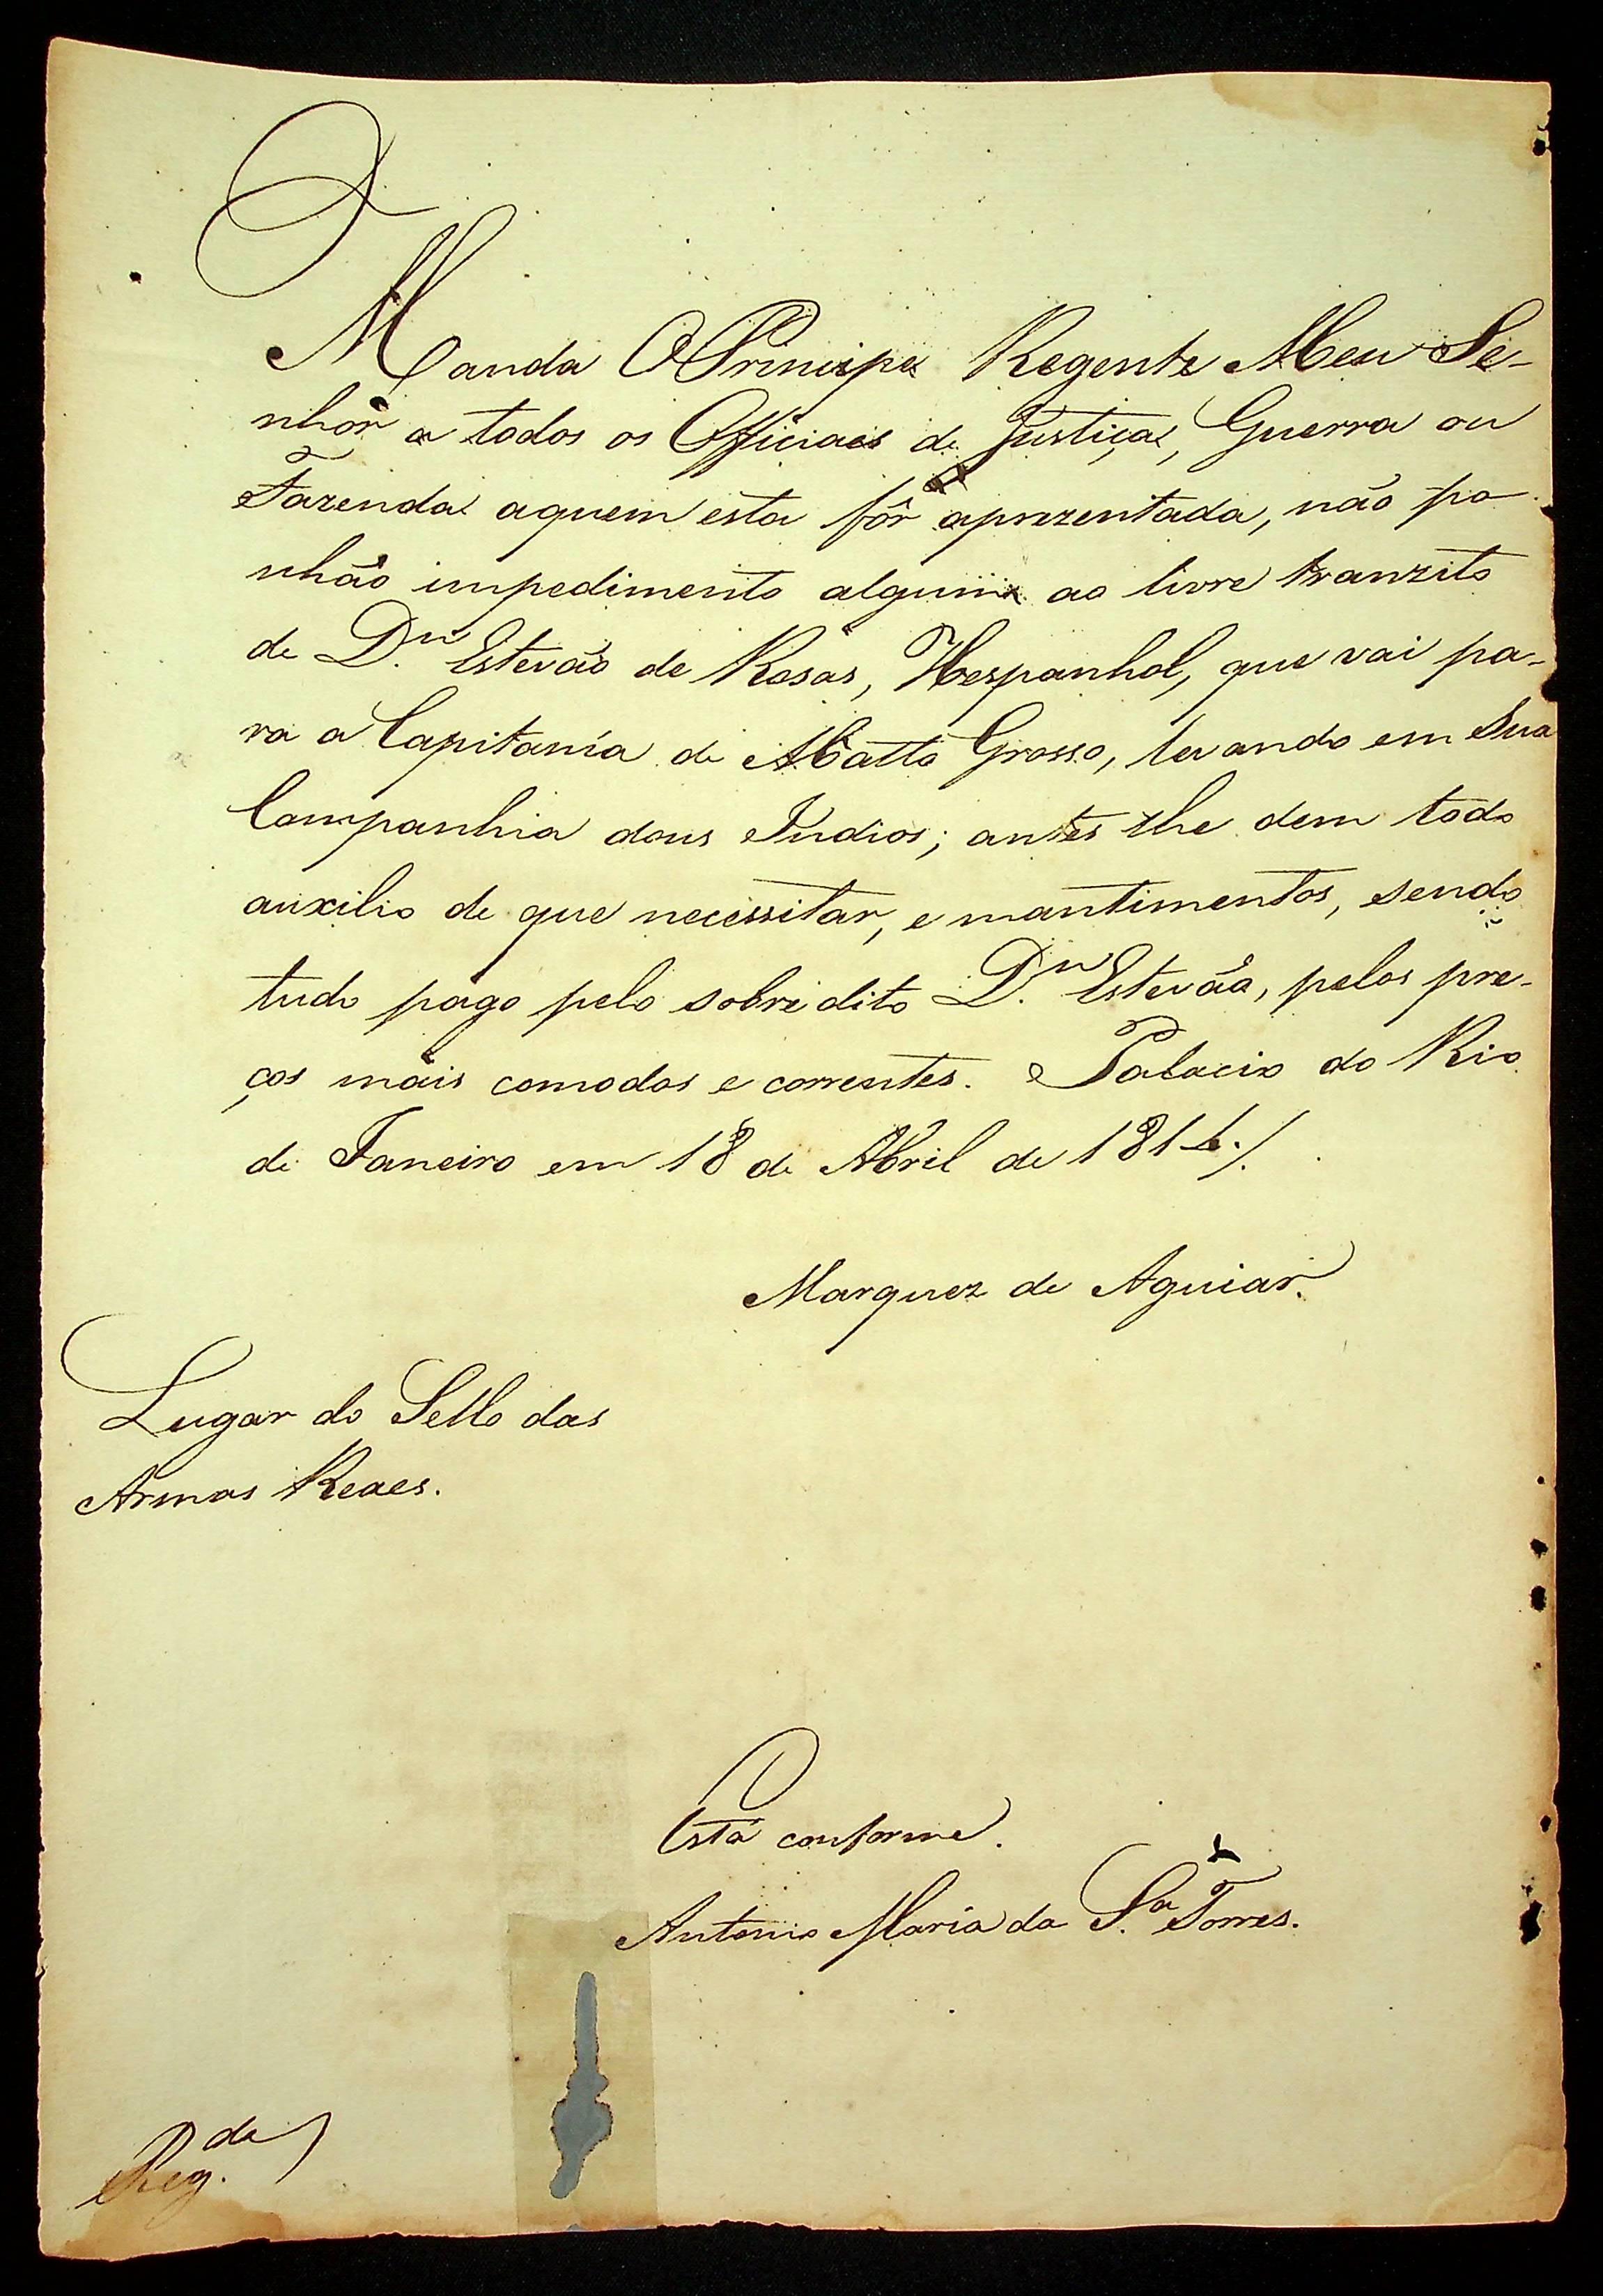 Manda O Principe Regente Meu Se-
nhor a todos os Officiaes de Justiça, Guerra ou
Fazenda aquem esta fôr aprezentada, não po-
nhão impedimento algum ao livre tranzito
de D.n Estevão de Rosas, Hespanhol, que vai pa-
ra a Capitanía de Matto Grosso, levando em Sua
Companhia dous Indios; antes lhe dem todo
auxilio de que necessitar, e mantimentos, sendo
tudo pago pelo sobredito D.n Estevão, pelos pre-
ços mais comodos e correntes. Palacio do Rio
de Janeiro em 18 de Abril de
Marquez de Aguiar.
Lugar do Sello das
Armas Reaes.
Está conforme.
Antonio Maria da S.a Torres.
Reg.da